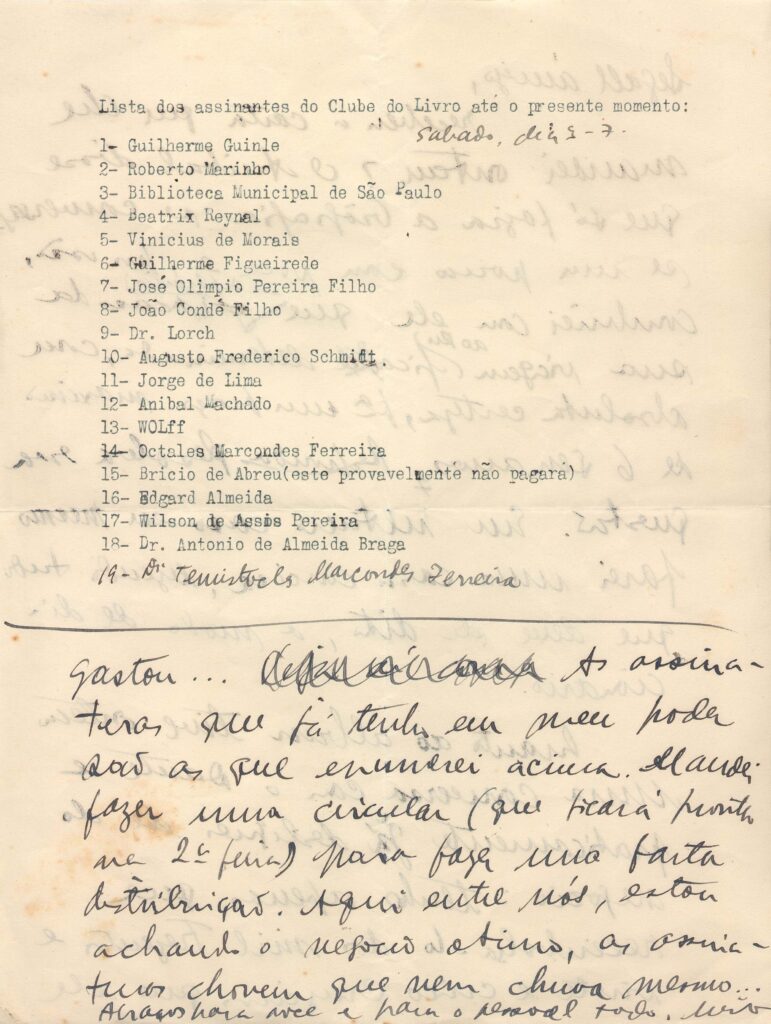 Lista dos assinantes do Clube do Livro até o presente momento:
sabado, dia 5-7.
1- Guilherme Guinle
2- Roberto Marinho
3- Biblioteca Municipal de São Paulo
4- Beatrix Reynal
5- Vinicius de Morais
6- Guilherme Figueirede
7- José Olimpio Pereira Filho
8- João Condé Filho
9- Dr. Lorch
10- Augusto Frederico Schmidt.
11- Jorge de Lima
12- Anibal Machado
13- WOLff
14- Octales Marcondes Ferreira
15- Bricio de Abreu(este provavelmente não pagará)
16- Edgard Almeida
17- Wilson de Assis Pereira
18- Dr. Antonio de Almeida Braga
19- Dr. Temistocles Marcondes Ferreira
Gaston... As assina-
turas que já tenho em meu poder
são as que enumerei acima. Mandei
fazer uma circular (que ficará pronta
na 2ª feira) para fazer uma farta
distribuição. Aqui entre nós, estou
achando o negocio otimo, as assina-
turas chovem que nem chuva mesmo...
Abraços para voce e para o pessoal todo.